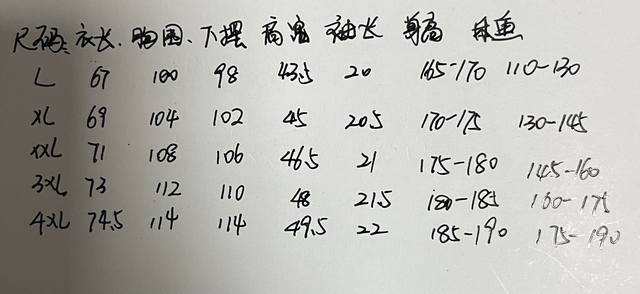 尺码: 衣长、胸围、下摆 肩宽 袖长 身高 体重
L 67 100 98 43.5 20 165-170 110-130
XL 69 104 102 45 20.5 170-175 130-145
XXL 71 108 106 46.5 21 175-180 145-160
3XL 73 112 110 48 21.5 180-185 160-175
4XL 74.5 114 114 49.5 22 185-190 175-190